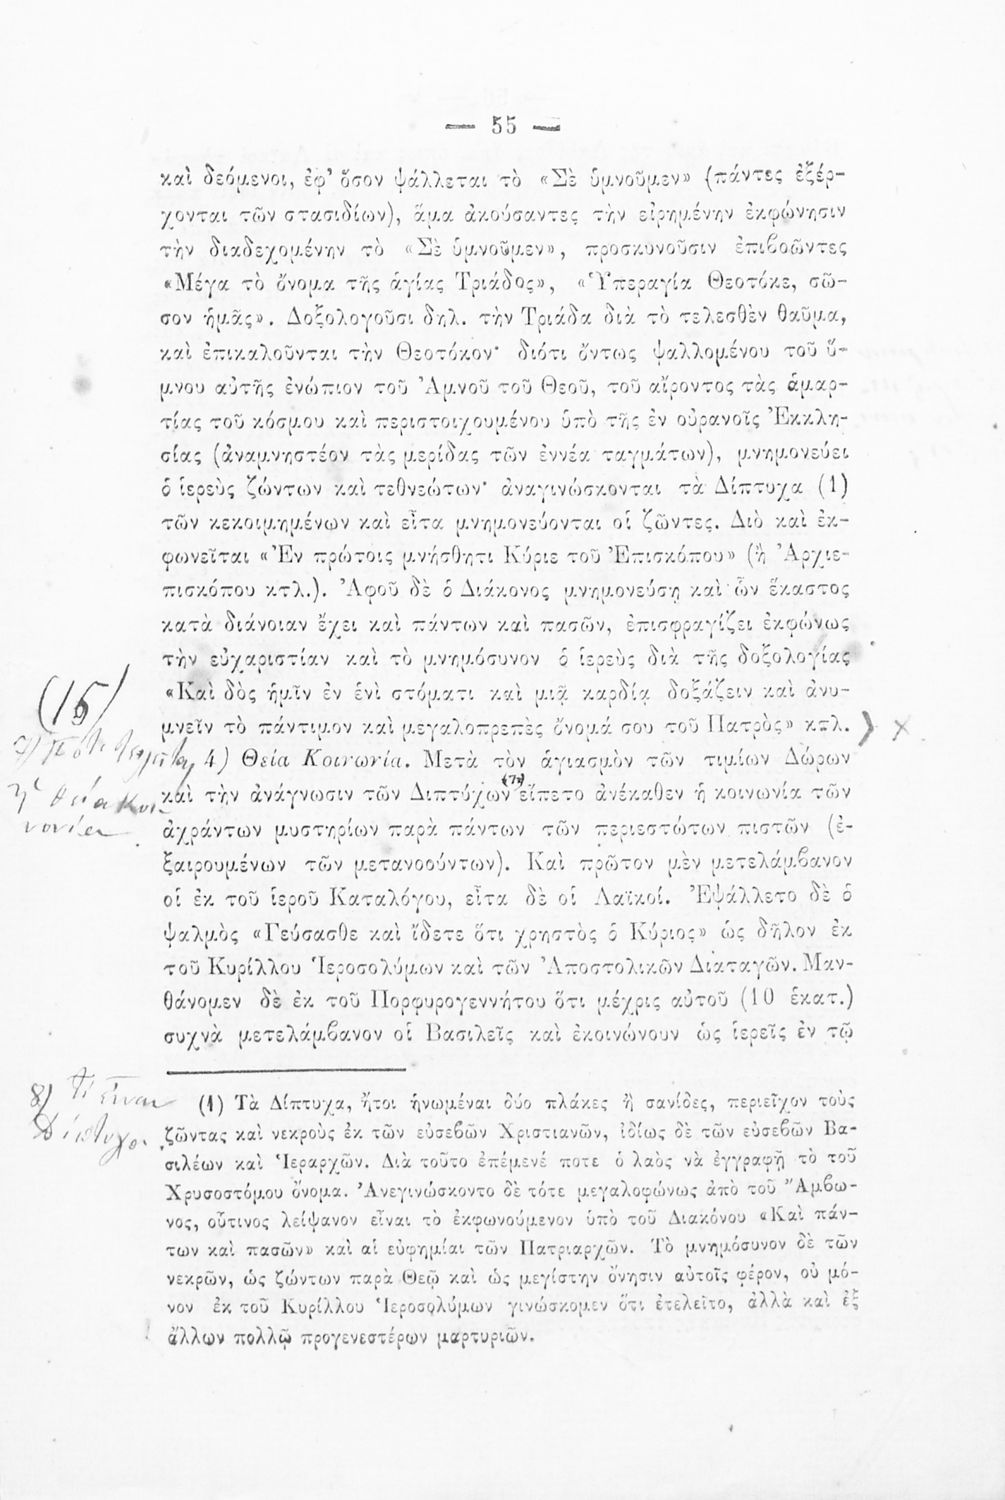 — 55 —
καὶ δεόμενοι, ἐφ’ ὅσον ψάλλεται τὸ «Σὲ ὑμνοῦμεν» (πάντες ἐξέρ-
χονται τῶν στασιδίων), ἅμα ἀκούσαντες τὴν εἰρημένην ἐκφώνησιν
τὴν διαδεχομένην τὸ «Σὲ ὑμνοῦμεν», προσκυνοῦσιν ἐπιβοῶντες
«Μέγα τὸ ὄνομα τῆς ἁγίας Τριάδος», «Ὑπεραγία Θεοτόκε, σῶ-
σον ἡμᾶς». Δοξολογοῦσι δηλ. τὴν Τριάδα διὰ τὸ τελεσθὲν θαῦμα,
καὶ ἐπικαλοῦνται τὴν Θεοτόκον· διότι ὄντως ψαλλομένου τοῦ ὕ-
μνου αὐτῆς ἐνώπιον τοῦ Ἀμνοῦ τοῦ Θεοῦ, τοῦ αἴροντος τὰς ἁμαρ-
τίας τοῦ κόσμου καὶ περιστοιχουμένου ὑπὸ τῆς ἐν οὐρανοῖς Ἐκκλη-
σίας (ἀναμνηστέον τὰς μερίδας τῶν ἐννέα ταγμάτων), μνημονεύει
ὁ ἱερεὺς ζώντων καὶ τεθνεώτων· ἀναγινώσκονται τὰ Δίπτυχα (1)
τῶν κεκοιμημένων καὶ εἶτα μνημονεύονται οἱ ζῶντες. Διὸ καὶ ἐκ-
φωνεῖται «Ἐν πρώτοις μνήσθητι Κύριε τοῦ Ἐπισκόπου» (ἢ Ἀρχιε-
πισκόπου κτλ.). Ἀφοῦ δὲ ὁ Διάκονος μνημονεύσῃ καὶ ὧν ἕκαστος
κατὰ διάνοιαν ἔχει καὶ πάντων καὶ πασῶν, ἐπισφραγίζει ἐκφώνως
τὴν εὐχαριστίαν καὶ τὸ μνημόσυνον ὁ ἱερεὺς διὰ τῆς δοξολογίας
«Καὶ δὸς ἡμῖν ἐν ἑνὶ στόματι καὶ μιᾷ καρδίᾳ δοξάζειν καὶ ἀνυ-
μνεῖν τὸ πάντιμον καὶ μεγαλοπρεπὲς ὄνομά σου τοῦ Πατρὸς» κτλ.
(15)
4) Θεία Κοινωνία. Μετὰ τὸν ἁγιασμὸν τῶν τιμίων Δώρων
ἡ θεία κοι-
νωνία
καὶ τὴν ἀνάγνωσιν τῶν Διπτύχων εἵπετο ἀνέκαθεν ἡ κοινωνία τῶν
ἀχράντων μυστηρίων παρὰ πάντων τῶν περιεστώτων πιστῶν (ἐ-
ξαιρουμένων τῶν μετανοούντων). Καὶ πρῶτον μὲν μετελάμβανον
οἱ ἐκ τοῦ ἱεροῦ Καταλόγου, εἶτα δὲ οἱ Λαϊκοί. Ἐψάλλετο δὲ ὁ
ψαλμὸς «Γεύσασθε καὶ ἴδετε ὅτι χρηστὸς ὁ Κύριος» ὡς δῆλον ἐκ
τοῦ Κυρίλλου Ἱεροσολύμων καὶ τῶν Ἀποστολικῶν Διαταγῶν. Μαν-
θάνομεν δὲ ἐκ τοῦ Πορφυρογεννήτου ὅτι μέχρις αὐτοῦ (10 ἑκατ.)
συχνὰ μετελάμβανον οἱ Βασιλεῖς καὶ ἐκοινώνουν ὡς ἱερεῖς ἐν τῷ
8) Τί εἶναι
Δίπτυχα
(1) Τὰ Δίπτυχα, ἤτοι ἡνωμέναι δύο πλάκες ἢ σανίδες, περιεῖχον τοὺς
ζῶντας καὶ νεκροὺς ἐκ τῶν εὐσεβῶν Χριστιανῶν, ἰδίως δὲ τῶν εὐσεβῶν Βα-
σιλέων καὶ Ἱεραρχῶν. Διὰ τοῦτο ἐπέμενέ ποτε ὁ λαὸς νὰ ἐγγραφῇ τὸ τοῦ
Χρυσοστόμου ὄνομα. Ἀνεγινώσκοντο δὲ τότε μεγαλοφώνως ἀπὸ τοῦ Ἄμβω-
νος, οὗτινος λείψανον εἶναι τὸ ἐκφωνούμενον ὑπὸ τοῦ Διακόνου «Καὶ πάν-
των καὶ πασῶν» καὶ αἱ εὐφημίαι τῶν Πατριαρχῶν. Τὸ μνημόσυνον δὲ τῶν
νεκρῶν, ὡς ζώντων παρὰ Θεῷ καὶ ὡς μεγίστην ὄνησιν αὐτοῖς φέρον, οὐ μό-
νον ἐκ τοῦ Κυρίλλου Ἱεροσολύμων γινώσκομεν ὅτι ἐτελεῖτο, ἀλλὰ καὶ ἐξ
ἄλλων πολλῷ προγενεστέρων μαρτυριῶν.